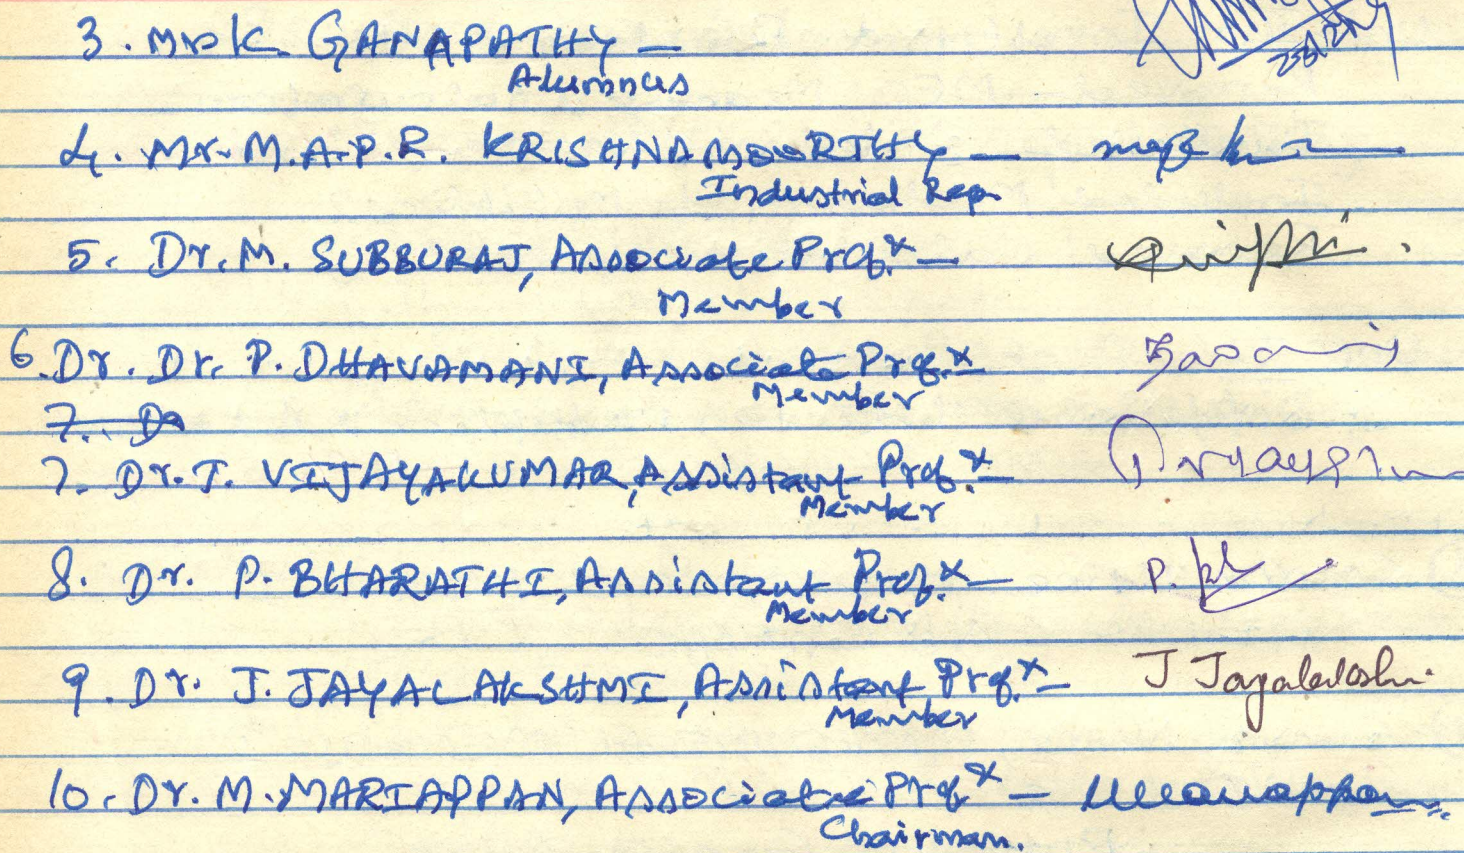 3. Mr. K. GANAPATHY —
Alumnus
4. Mr. M.A.P.R. KRISHNAMOORTHY —
Industrial Rep.
5. Dr. M. SUBBURAJ, Associate Prof. x —
Member
6. Dr. Dr. P. DHAVAMANI, Associate Prof. x
Member
7. Dr
7. Dr. T. VIJAYAKUMAR, Assistant Prof. x —
Member
8. Dr. P. BHARATHI, Assistant Prof. x —
P.
Member
9. Dr. J. JAYALAKSHMI, Assistant Prof. x —
J Jayalakshmi
Member
10. Dr. M. MARIAPPAN, Associate Prof x —
Chairman.